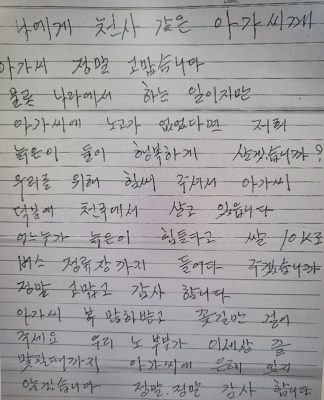 나에게 천사 같은 아가씨께
아가씨 정말 고맙습니다
물론 나라에서 하는 일이지만
아가씨에 노고가 없었다면 저희
늙은이 들이 행복하게 살겠습니까?
우리를 위해 힘써 주셔서 아가씨
덕분에 천국에서 살고 있읍니다
어느누가 늙은이 힘들다고 쌀 10K로
버스 정류장까지 들어다 주겠습니까
정말 고맙고 감사 합니다
아가씨 복 많이받고 꽃길만 걸어
주세요 우리 노 부부가 이세상 끝
말할때까지 아가씨에 은혜 잊지
않겠습니다 정말.정말 감사 합니다